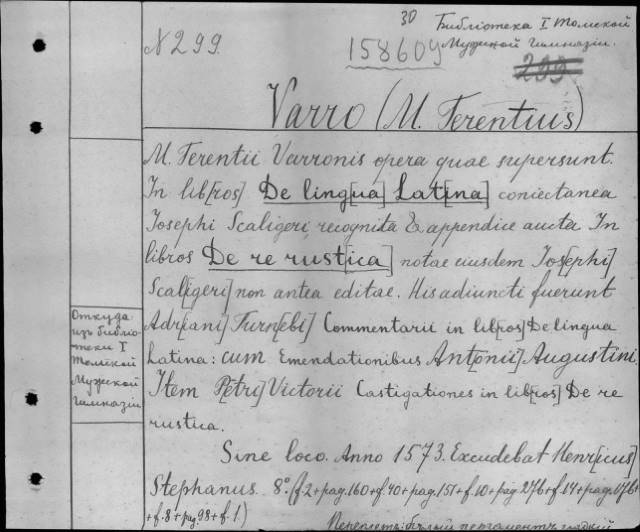 N 299.
30
158609
Библіотека I Томской
Мужской Гимназіи.
299
Varro (M. Terentius)
M. Terentii Varronis opera quae supersunt.
In lib[ros] De ling[ua] Lat[ina] coniectanea
Iosephi Scaligeri, recognita & appendice aucta. In
libros De re rustica] notae eiusdem Ios[ephi]
Scal[igeri] non antea editae. His adiuncti fuerunt
Adr[iani] Turn[ebi] Commentarii in lib[ros] De lingua
Latina: cum Emendationibus Ant[onii] Augustini.
Item P[etri] Victorii Castigationes in lib[ros] De re
rustica.
Sine loco. Anno 1573. Excudebat Henr[icus]
Stephanus. 8º. (f. 2 + pag. 160 + f. 40 + pag. 151 + f. 10 + pag 276 + f. 14 +
+ f. 8 + pag. 98 + f. 1)
Переплетъ: бѣлый пергаментъ гладкий
Откуда:
изъ библіо-
теки I
Томской
Мужской
Гимназіи